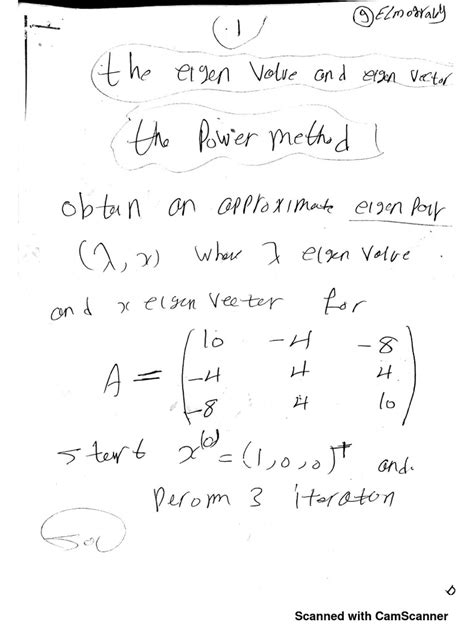 (.1)
⑨ Elmograby
the eigen Value and eigen Vector
the Power method
obtan an approximate eigen Pair
(λ, x) wher λ eigen Value
and x eigen Veetor for
A = ( 10 -4 -8
-4 4 4
-8 4 10 )
stert x^(0) = (1,0,0)^T and.
Perom 3 iteraton
Sol
Scanned with CamScanner